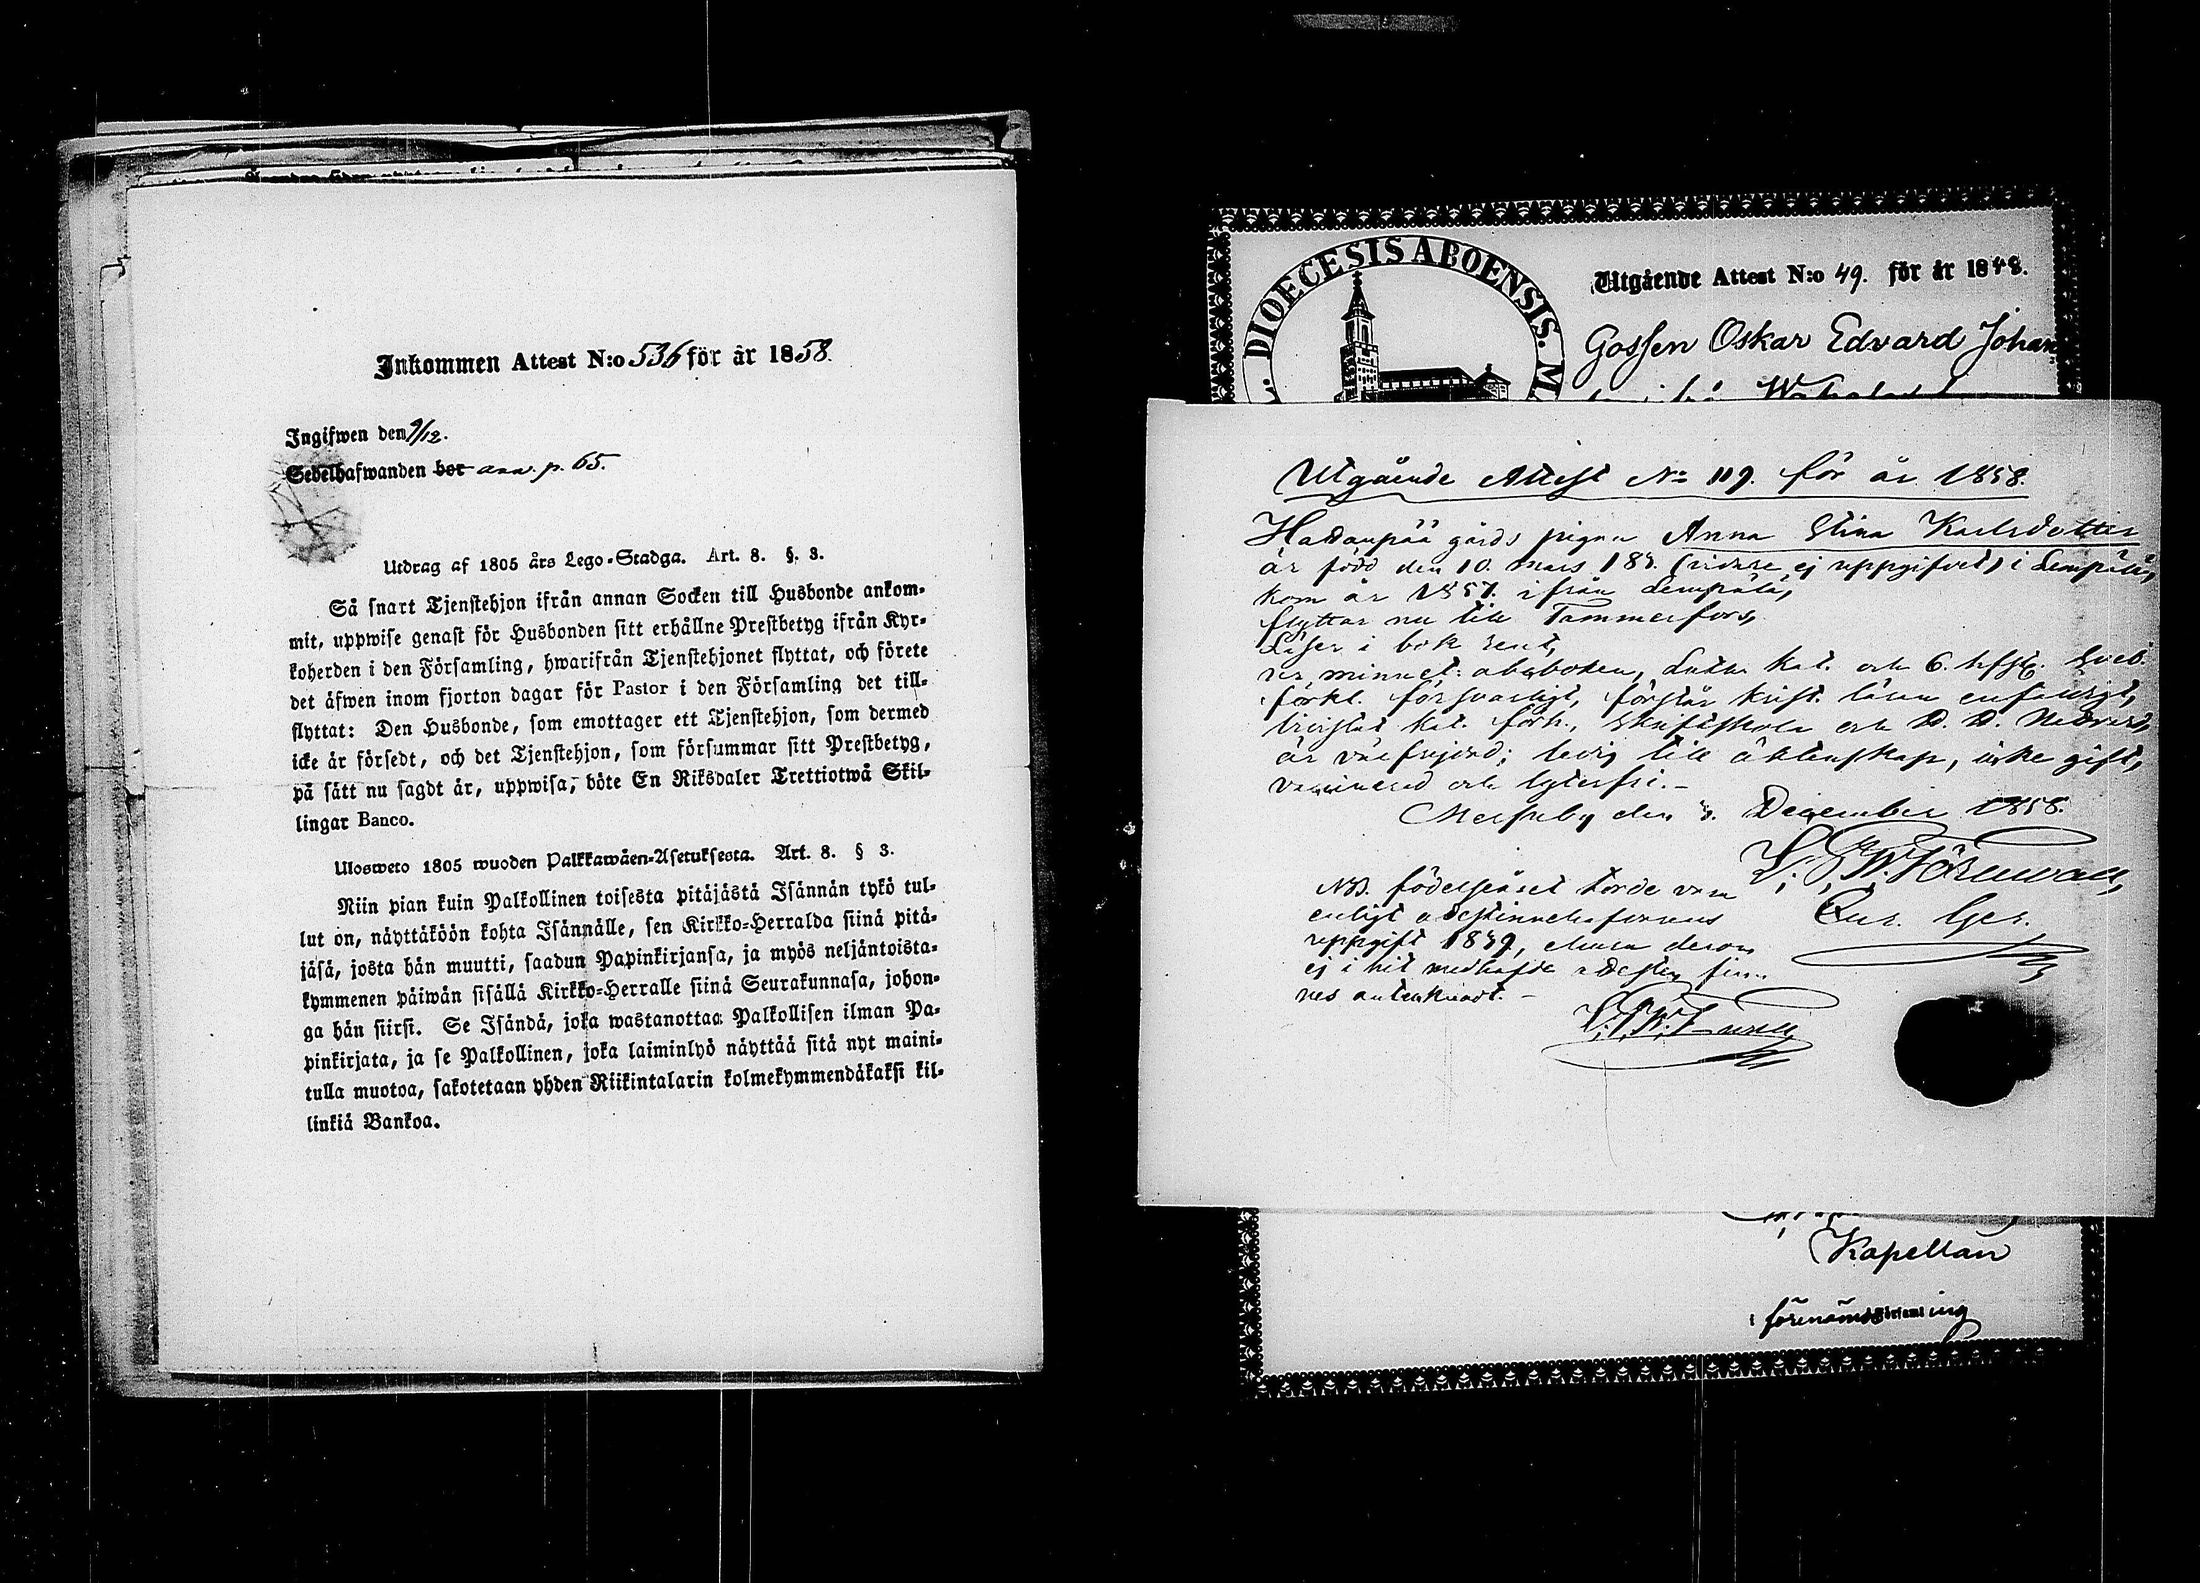 Inkommen Attest N:o 536 för år 1858.
Ingifwen den 9/12.
Sedelhafwanden bor ann. p. 65.
Utdrag af 1805 års Lego-Stadga. Art. 8. §. 3.
Så snart Tjenstehjon ifrån annan Socken till Husbonde ankom-
mit, uppwise genast för Husbonden sitt erhållne Prestbetyg ifrån Kyr-
koherden i den Församling, hwarifrån Tjenstehjonet flyttat, och förete
det äfwen inom fjorton dagar för Pastor i den Församling det till-
flyttat: Den Husbonde, som emottager ett Tjenstehjon, som dermed
icke är försedt, och det Tjenstehjon, som försummar sitt Prestbetyg,
på sätt nu sagdt är, uppwisa, böte En Riksdaler Trettiotwå Skil-
lingar Banco.
Ulosweto 1805 wuoden Palkkawäen-Asetuksesta. Art. 8. § 3.
Niin pian kuin Palkollinen toisesta pitäjästä Isännän tykö tul-
lut on, näyttäköön kohta Isännälle, sen Kirkko-Herralda siinä pitä-
jäsä, josta hän muutti, saadun Papinkirjansa, ja myös neljäntoista-
kymmenen päiwän sisällä Kirkko-Herralle siinä Seurakunnasa, johon-
ga hän siirsi. Se Isändä, joka wastanottaa Palkollisen ilman Pa-
pinkirjata, ja se Palkollinen, joka laiminlyö näyttää sitä nyt maini-
tulla muotoa, sakotetaan yhden Riikintalarin kolmekymmendäkaksi kil-
linkiä Bankoa.
DIOECESIS ABOENSIS. M.
Utgående Attest N:o 49. för år 1848.
Gossen Oskar Edvard Johan
Utgående Attest No 119. för år 1858.
Hattanpää gårds pigan Anna Stina Karlsdotter
är född den 10. mars 183. (vidare ej uppgifvet) i Lempälä,
kom år 1857. ifrån Lempälä,
flyttar nu till Tammerfors,
Läser i bok rent,
ur minnet: abcboken, Luth. kat. och 6. hfst. Sveb.
förkl. försvarligt, förstår krist. läran enfaldigt,
bivistat kat. förh., skriftskola och H. H. Nattvard,
är välfrejdad; ledig till äktenskap, icke gift,
vaccinerad och lyterfri. -
Messuby den 3. December 1858.
NB. födelseåret torde vara
enligt attestinnehafvarens
uppgift 1839, churu derom
ej i hit medhafde attesten fin-
nes antecknadt. -
Kapellan
i förenämnde Församling